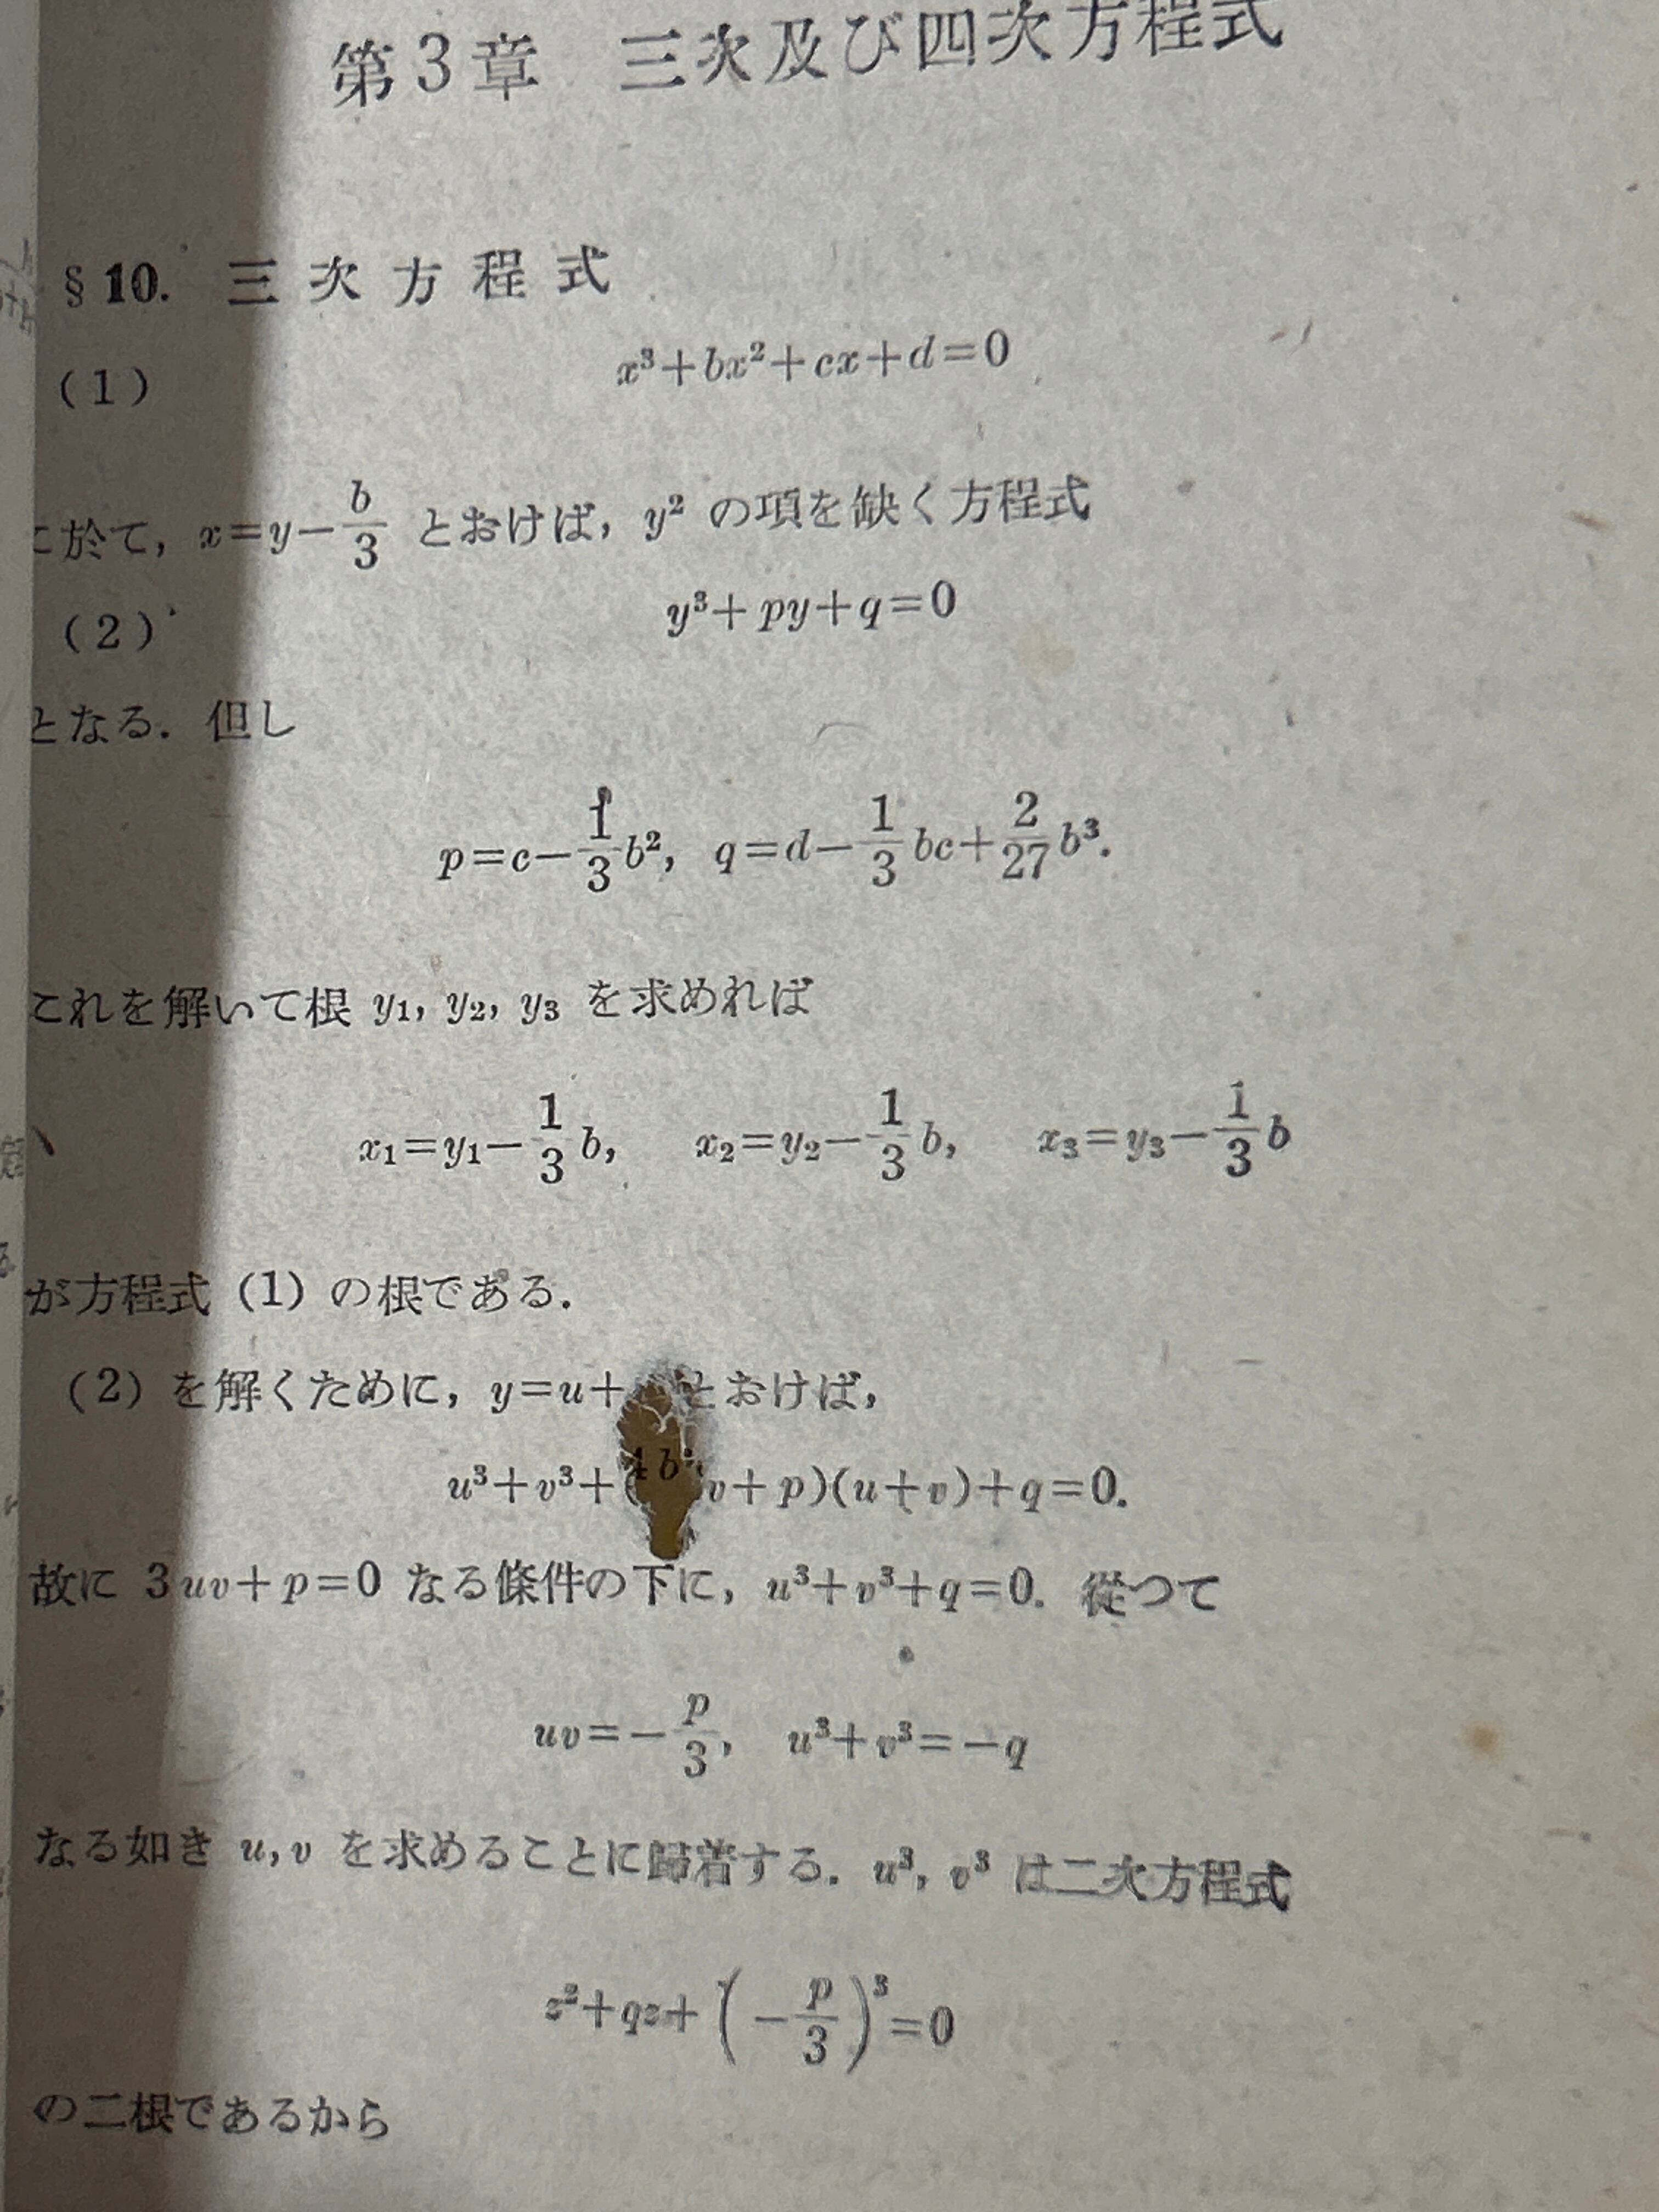 第3章 三次及び四次方程式
§10. 三次方程式
(1) x³+bx²+cx+d=0
に於て, x=y−b/3 とおけば, y² の項を缺く方程式
(2) y³+py+q=0
となる. 但し
p=c−1/3 b², q=d−1/3 bc+2/27 b³.
これを解いて根 y₁, y₂, y₃ を求めれば
x₁=y₁−1/3 b, x₂=y₂−1/3 b, x₃=y₃−1/3 b
が方程式 (1) の根である.
(2) を解くために, y=u+ とおけば,
4b
u³+v³+( v+p)(u+v)+q=0.
故に 3uv+p=0 なる條件の下に, u³+v³+q=0. 從つて
uv=−p/3, u³+v³=−q
なる如き u, v を求めることに歸着する. u³, v³ は二次方程式
z²+qz+(−p/3)³=0
の二根であるから